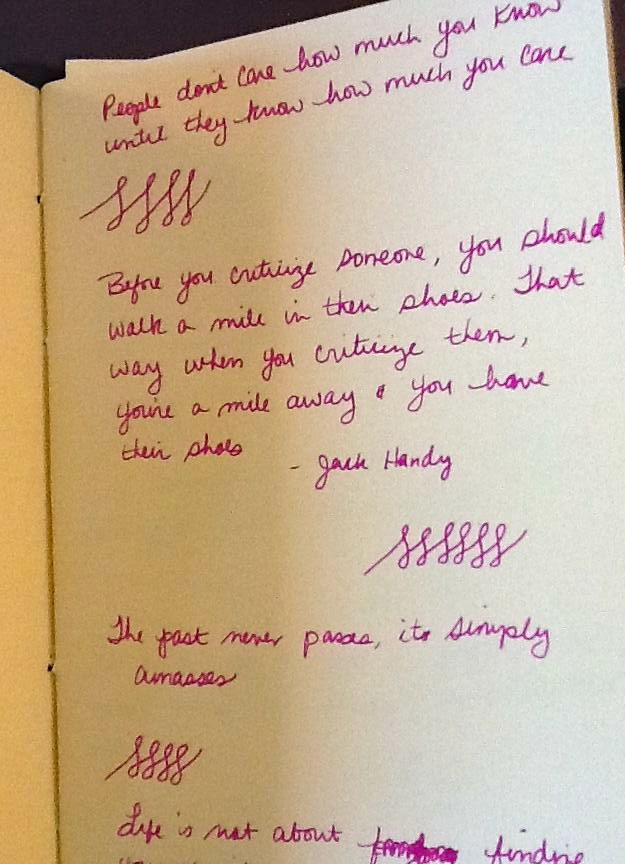 People don't care how much you know
until they know how much you care
Before you criticize someone, you should
walk a mile in their shoes. That
way when you criticize them,
you're a mile away & you have
their shoes
- Jack Handy
The past never passes, its simply
amasses
Life is not about finding